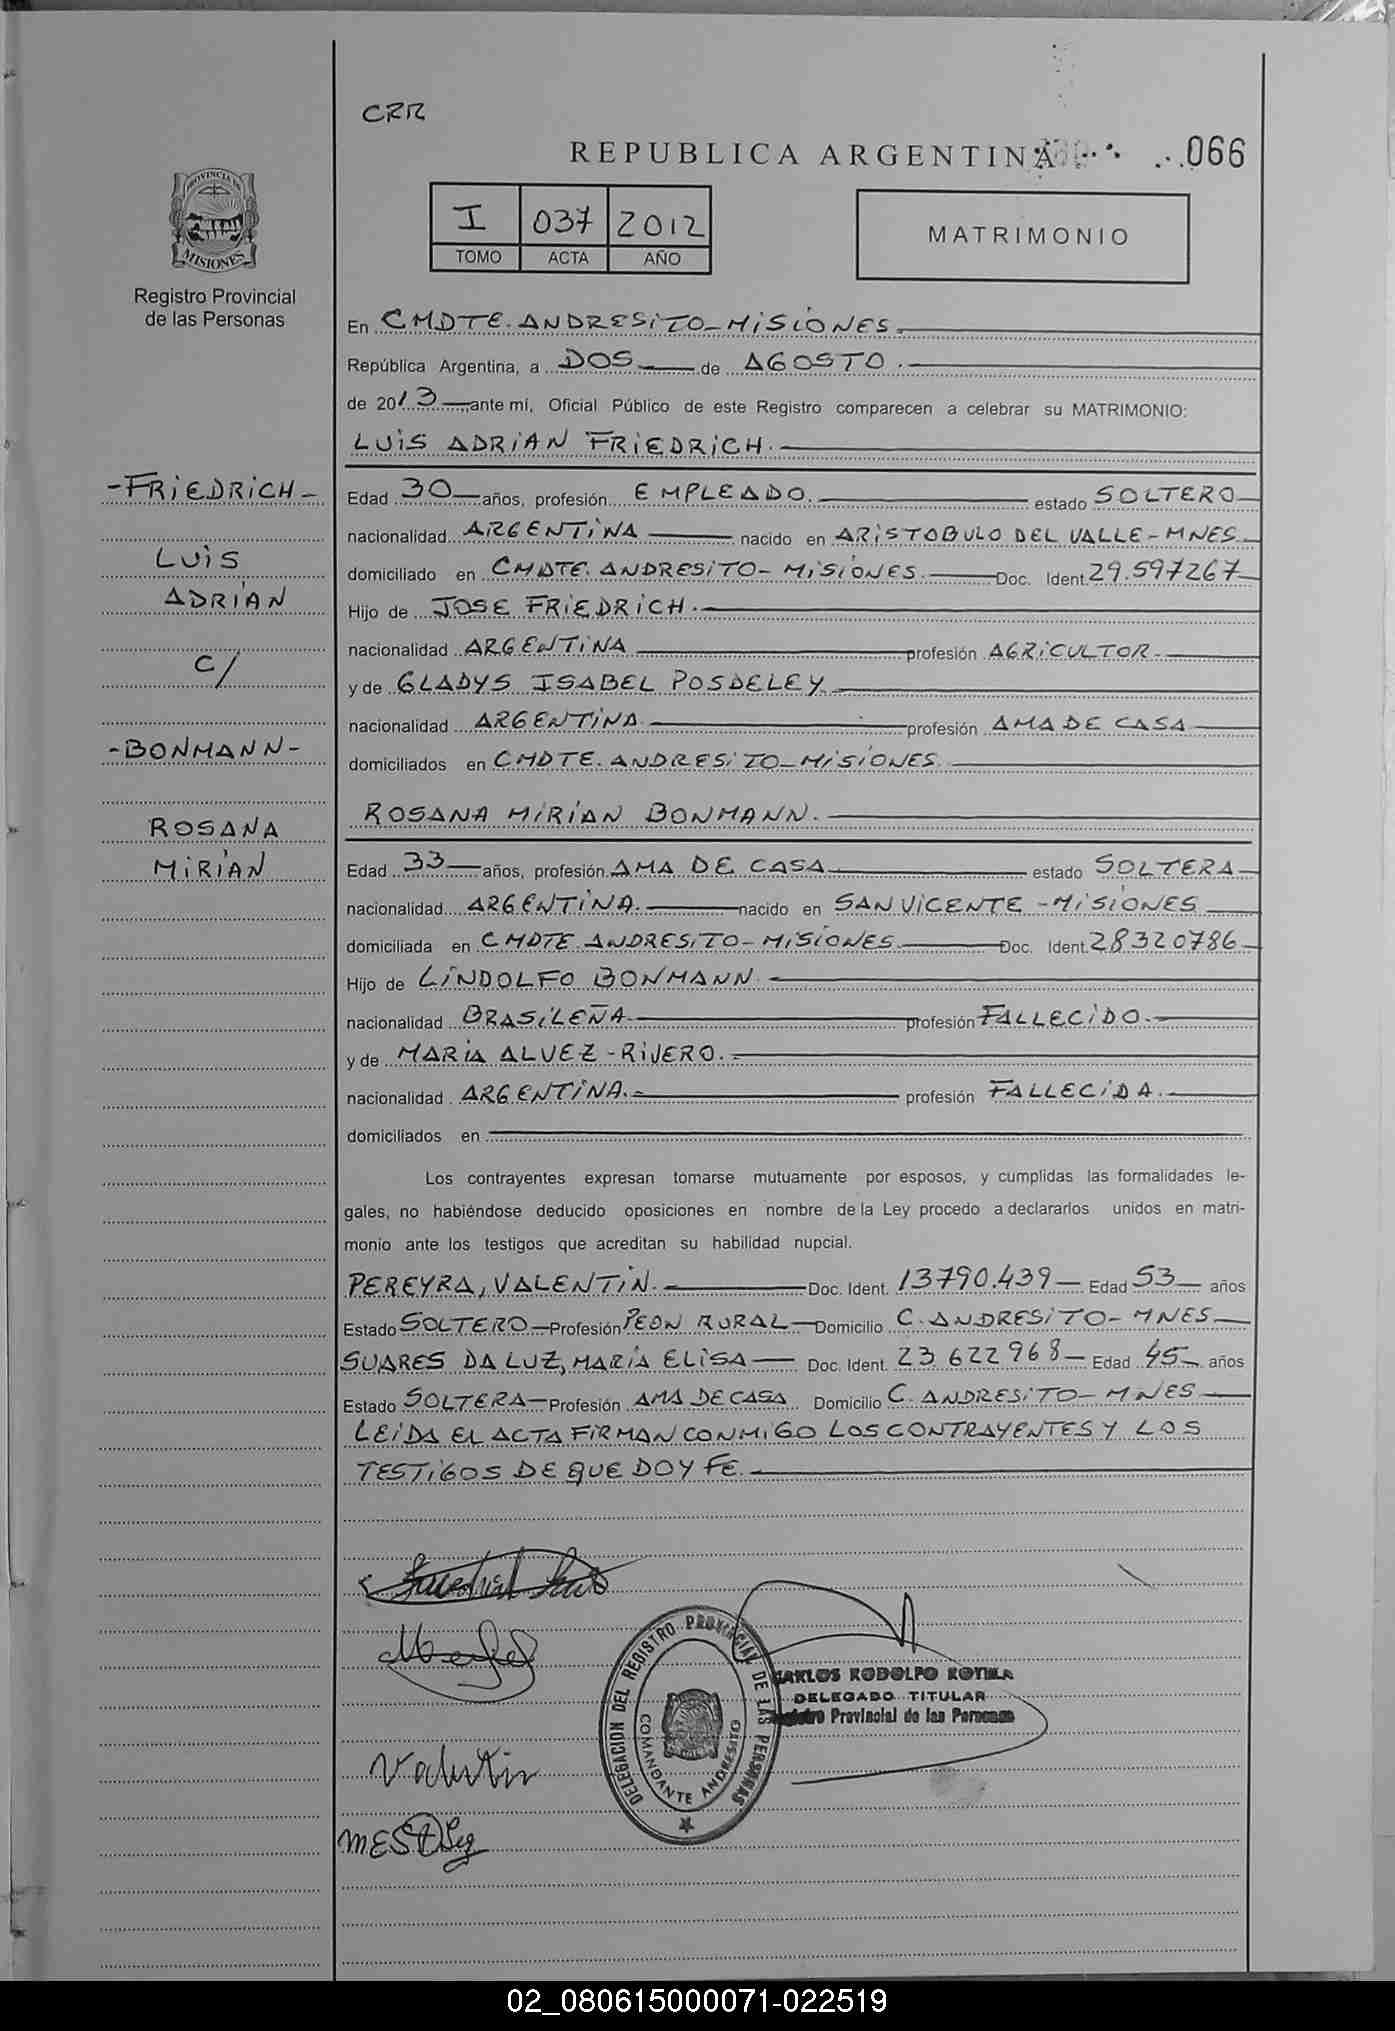 CRR
REPUBLICA ARGENTINA
066
PROVINCIA DE
MISIONES
Registro Provincial
de las Personas
I 037 2012
TOMO ACTA AÑO
MATRIMONIO
En CMDTE. ANDRESITO - MISIONES.
República Argentina, a DOS de AGOSTO.
de 2013 ante mí, Oficial Público de este Registro comparecen a celebrar su MATRIMONIO:
LUIS ADRIAN FRIEDRICH.
-FRIEDRICH-
LUIS
ADRIAN
C/
-BONMANN-
ROSANA
MIRIAN
Edad 30 años, profesión EMPLEADO. estado SOLTERO
nacionalidad ARGENTINA nacido en ARISTOBULO DEL VALLE - MNES
domiciliado en CMDTE. ANDRESITO - MISIONES. Doc. Ident. 29.597267
Hijo de JOSE FRIEDRICH.
nacionalidad ARGENTINA profesión AGRICULTOR.
y de GLADYS ISABEL POSDELEY
nacionalidad ARGENTINA. profesión AMA DE CASA
domiciliados en CMDTE. ANDRESITO - MISIONES.
ROSANA MIRIAN BONMANN.
Edad 33 años, profesión AMA DE CASA estado SOLTERA
nacionalidad ARGENTINA. nacido en SAN VICENTE - MISIONES
domiciliada en CMDTE. ANDRESITO - MISIONES. Doc. Ident. 28320786
Hijo de LINDOLFO BONMANN.
nacionalidad BRASILEÑA. profesión FALLECIDO.
y de MARIA ALVEZ - RIVERO.
nacionalidad ARGENTINA. profesión FALLECIDA.
domiciliados en
Los contrayentes expresan tomarse mutuamente por esposos, y cumplidas las formalidades le-
gales, no habiéndose deducido oposiciones en nombre de la Ley procedo a declararlos unidos en matri-
monio ante los testigos que acreditan su habilidad nupcial.
PEREYRA, VALENTIN. Doc. Ident. 13790.439 Edad 53 años
Estado SOLTERO Profesión PEON RURAL Domicilio C. ANDRESITO - MNES
SUARES DA LUZ, MARIA ELISA Doc. Ident. 23 622 968 Edad 45 años
Estado SOLTERA Profesión AMA DE CASA Domicilio C. ANDRESITO - MNES
LEIDA EL ACTA FIRMAN CONMIGO LOS CONTRAYENTES Y LOS
TESTIGOS DE QUE DOY FE.
DELEGACION DEL REGISTRO PROVINCIAL DE LAS PERSONAS
COMANDANTE ANDRESITO
CARLOS RODOLFO
DELEGADO TITULAR
Registro Provincial de las Personas
Valentin
02_080615000071-022519